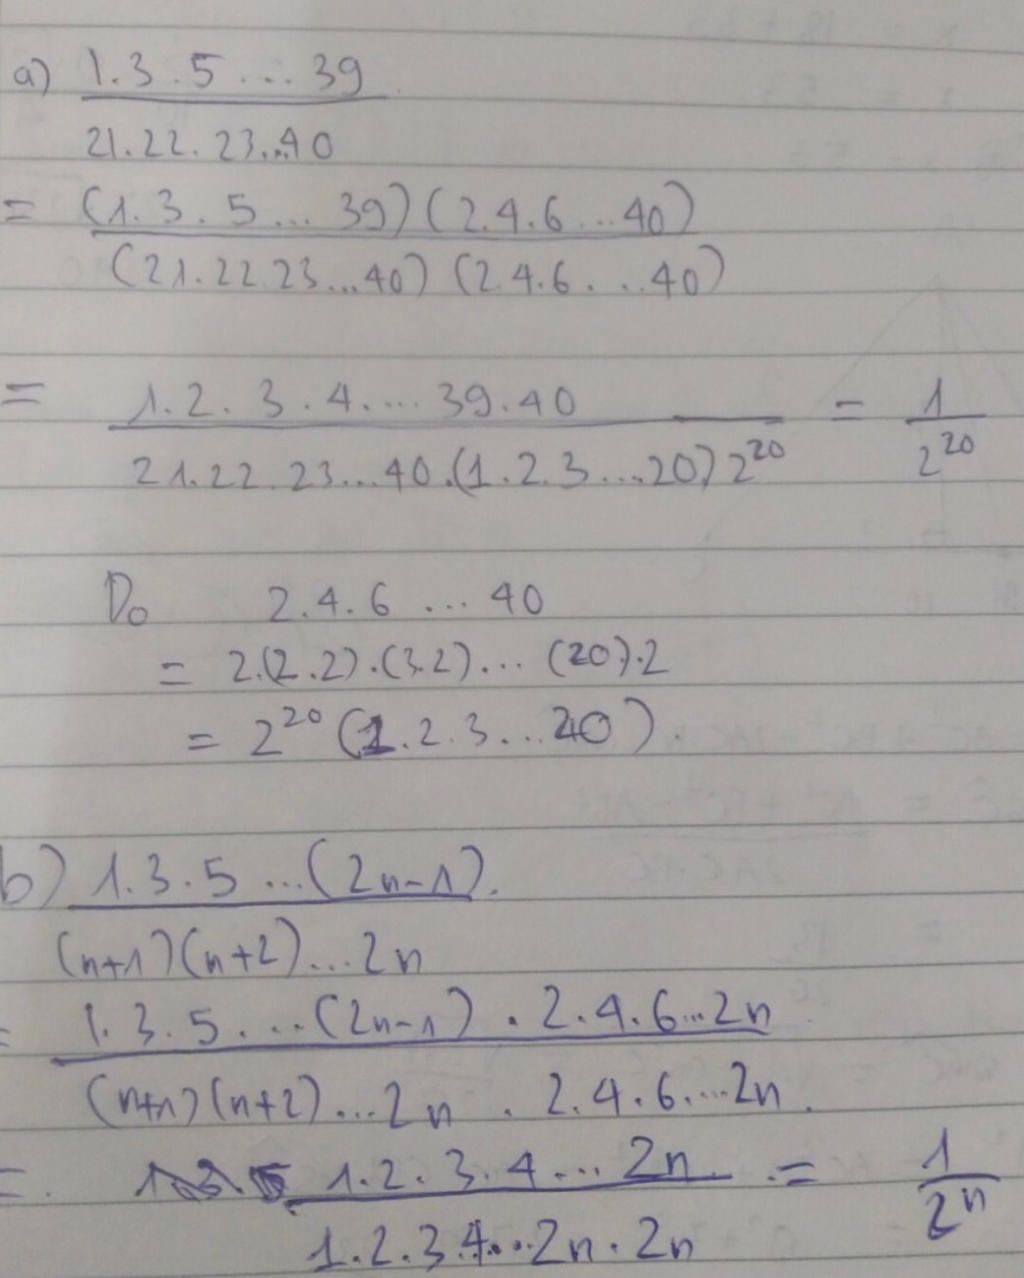 a) 1.3.5...39
21.22.23...40
= (1.3.5...39)(2.4.6...40)
(21.22.23...40)(2.4.6...40)
= 1.2.3.4....39.40 = 1
21.22.23...40.(1.2.3...20)2^20 2^20
Do 2.4.6...40
= 2.(2.2).(3.2)...(20).2
= 2^20 (1.2.3...20).
b) 1.3.5...(2n-1).
(n+1)(n+2)...2n
= 1.3.5...(2n-1).2.4.6...2n
(n+1)(n+2)...2n.2.4.6....2n.
= 1.2.3.4...2n = 1
1.2.3.4...2n.2n 2^n